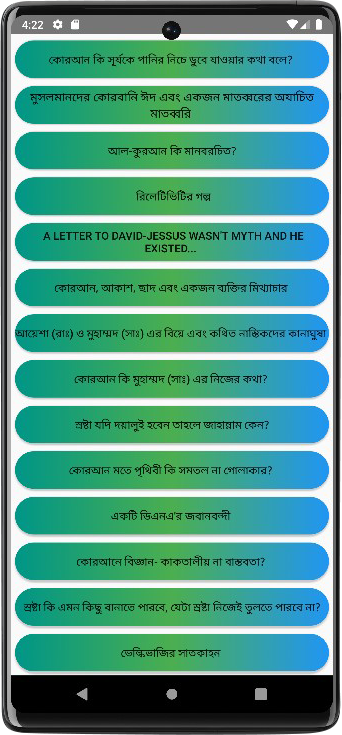 4:22
কোরআন কি সূর্যকে পানির নিচে ডুবে যাওয়ার কথা বলে?
মুসলমানদের কোরবানি ঈদ এবং একজন মাতব্বরের অযাচিত
মাতব্বরি
আল-কুরআন কি মানবরচিত?
রিলেটিভিটির গল্প
A LETTER TO DAVID-JESSUS WASN'T MYTH AND HE
EXISTED...
কোরআন, আকাশ, ছাদ এবং একজন ব্যক্তির মিথ্যাচার
আয়েশা (রাঃ) ও মুহাম্মদ (সাঃ) এর বিয়ে এবং কথিত নাস্তিকদের কানাঘুষা
কোরআন কি মুহাম্মদ (সাঃ) এর নিজের কথা?
স্রষ্টা যদি দয়ালুই হবেন তাহলে জাহান্নাম কেন?
কোরআন মতে পৃথিবী কি সমতল না গোলাকার?
একটি ডিএনএ'র জবানবন্দী
কোরআনে বিজ্ঞান- কাকতালীয় না বাস্তবতা?
স্রষ্টা কি এমন কিছু বানাতে পারবে, যেটা স্রষ্টা নিজেই তুলতে পারবে না?
ভেল্কিভাজির সাতকাহন